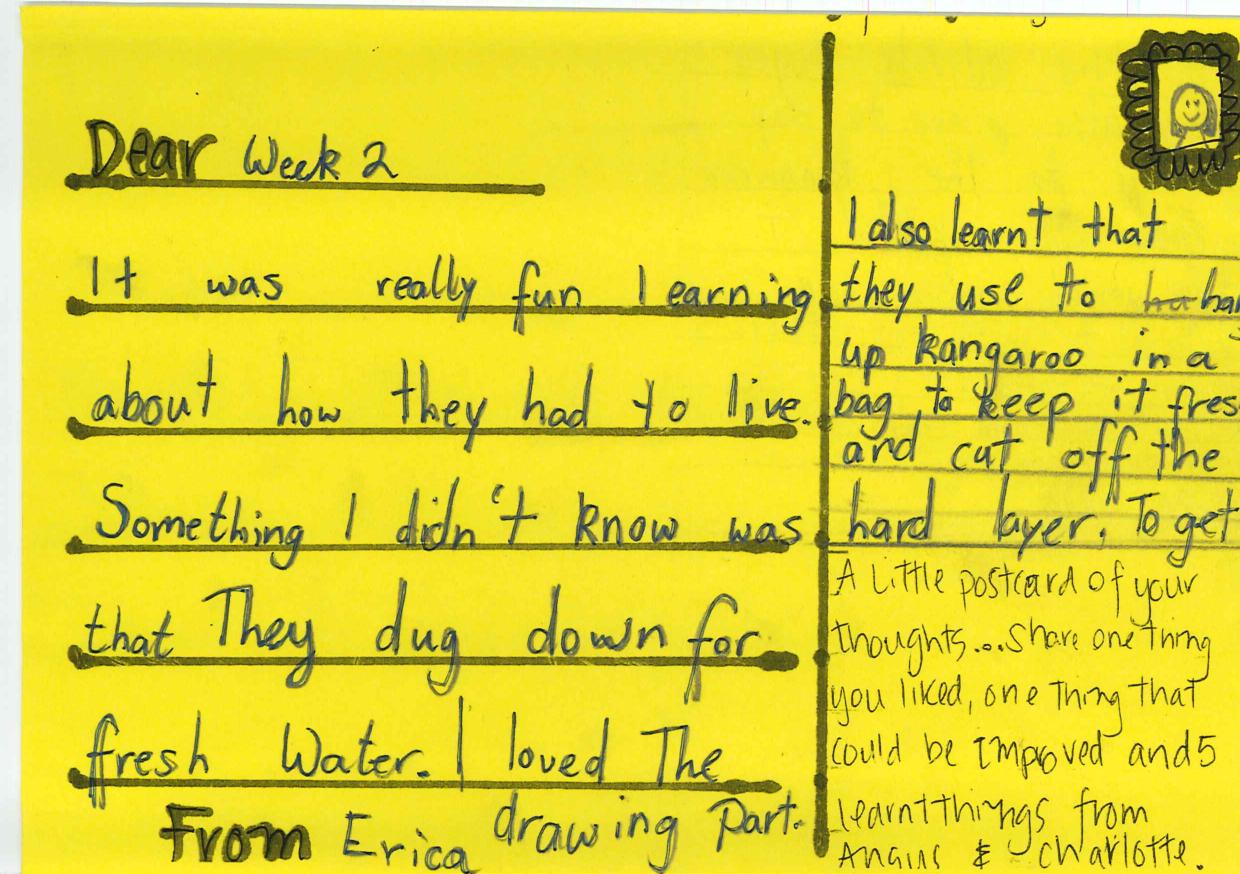 Dear Week 2
It was really fun learning
about how they had to live.
Something I didn't know was
that They dug down for
fresh Water. I loved The
drawing Part.
From Erica
I also learnt that
they use to
up kangaroo in a
bag, to keep it
and cut off the
hard layer. To get
A Little postcard of your
thoughts...Share one thing
you liked, one Thing that
could be Improved and 5
learnt things from
& Charlotte.